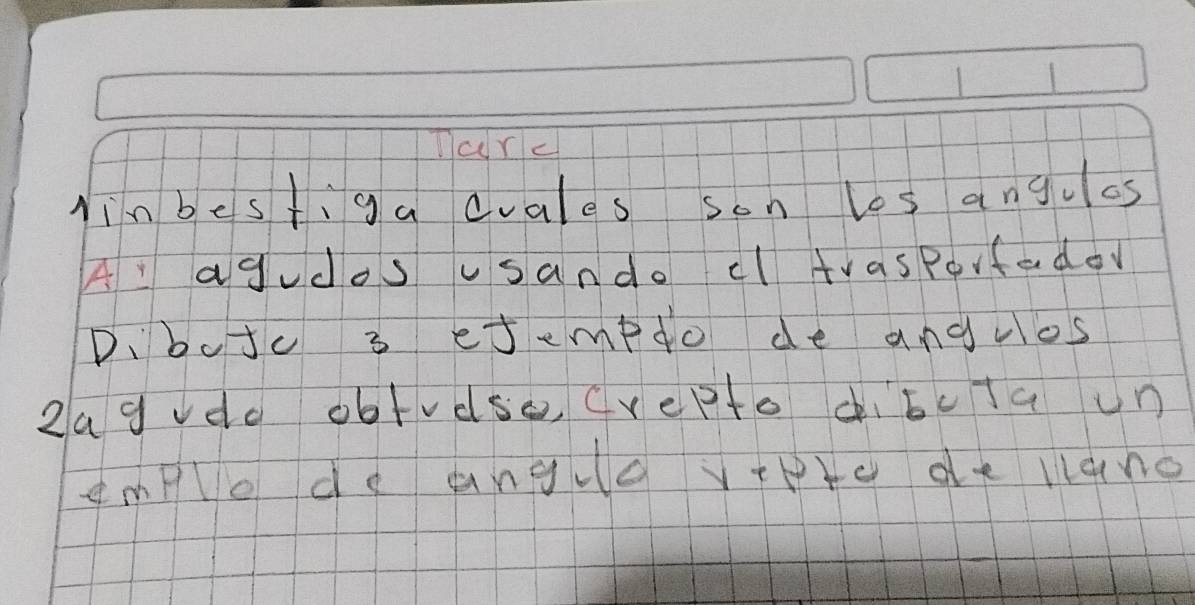 Tarc
1 inbestiga cuales son los angulos
A: agudos usando el trasportador
Dibuje 3 ejempdo de angulos
2 agudo obtudso, crepto dibuja un
emplo de angulo repto de llano